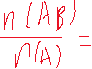 n(AB)
n(A) =